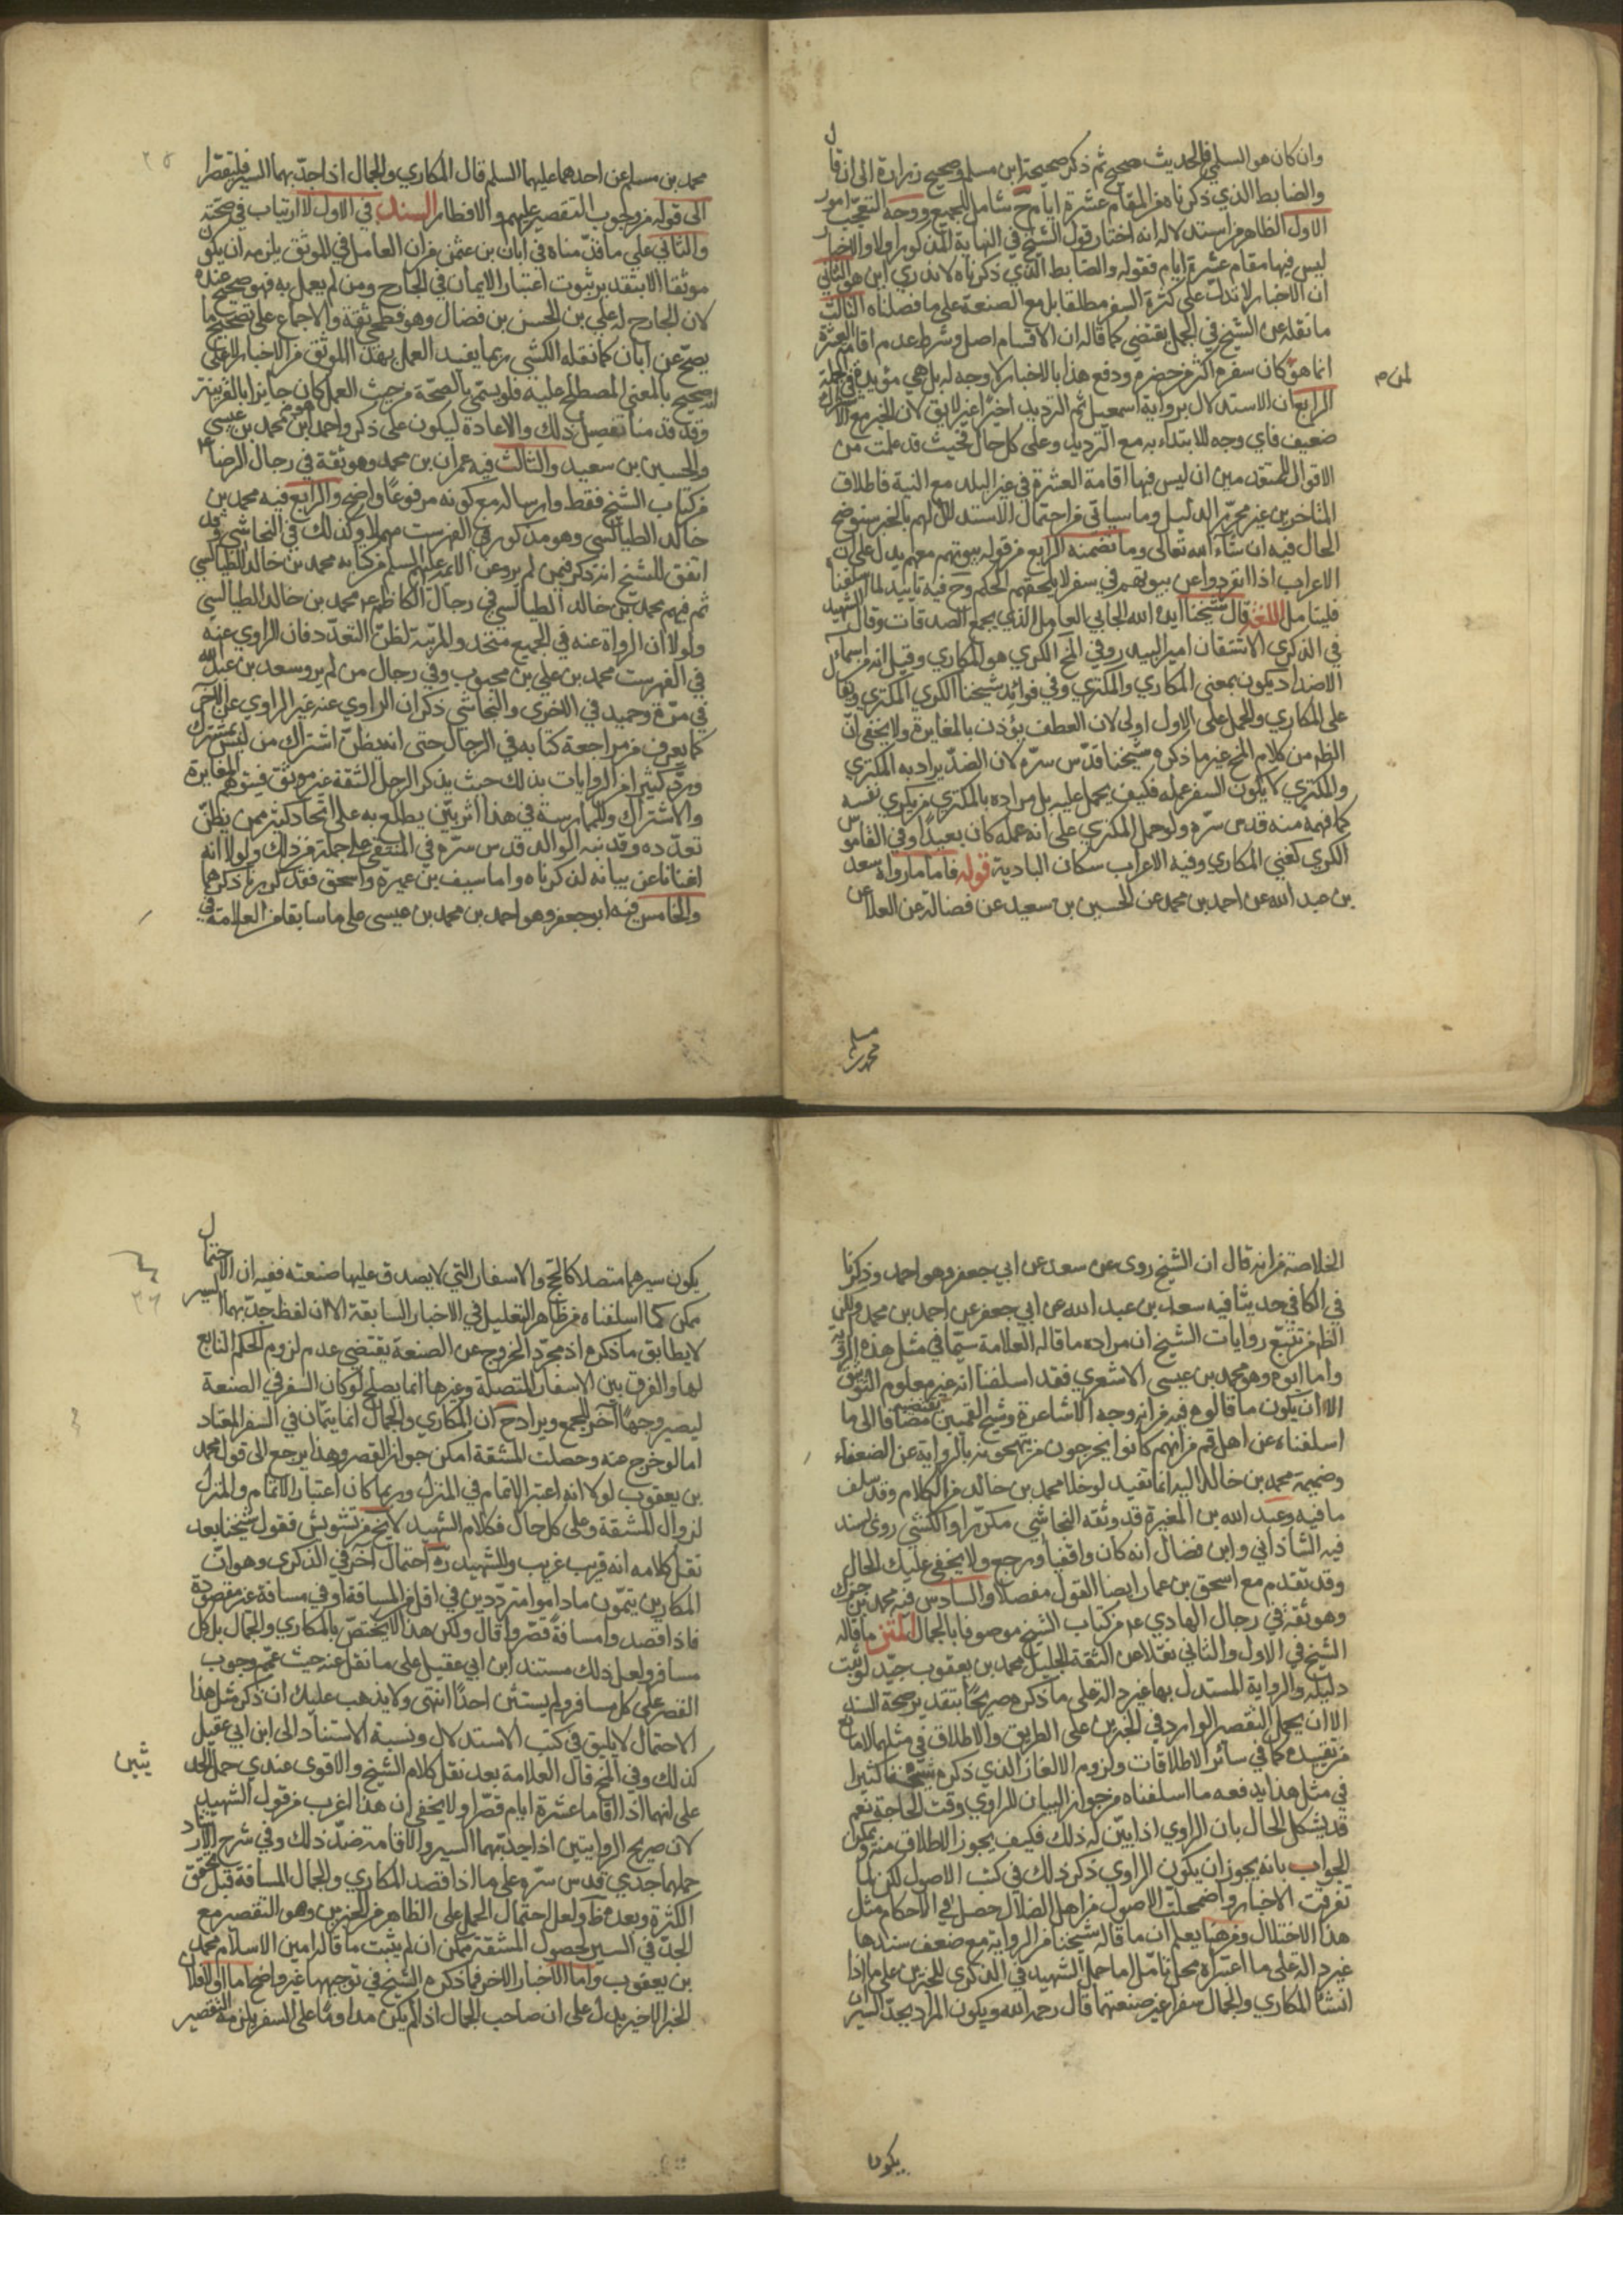 وان كان هو السلمي فالحديث صحيح ثم ذكر صحيحة ابن مسلم وصحيح زرارة الى ان قال
والضابط الذي ذكرناه من المقام عشرة ايام ح شامل للجميع ووجه التعجب امور
الاول الظاهر من استدلاله انه اختار قول الشيخ في النهاية المذكور اولا والاخبار
ليس فيها مقام عشرة ايام فقوله والضابط الذي ذكرناه لا ندري اين هو الثاني
ان الاخبار لا تدل على كثرة السفر مطلقا بل مع الصنعة على ما فصلناه الثالث
ما نقله عن الشيخ في الجمل يقتضي كما قاله ان الاقسام اصل وشرط عدم اقامة العشرة
انما هو كان سفره اكثر من حضره ودفع هذا بالاخبار لا وجه له بل هي مؤيدة في الجملة
لمن م
الرابع ان الاستدلال برواية اسمعيل ثم الترديد اخيرا غير لايق لان الخبر مع الاشتراك
ضعيف فاي وجه للابتداء به مع الترديد وعلى كل حال فحيث قد علمت من
الاقوال المتقدمين ان ليس فيها اقامة العشرة في غير البلد مع النية فاطلاق
المتاخرين غير محرر الدليل وما سياتي من احتمال الاستدلال لهم بالخبر سنوضح
الحال فيه ان شاء الله تعالى وما تضمنه الرابع من قوله بيوتهم معهم يدل على ان
الاعراب اذا انفردوا عن بيوتهم في سفر لا يلحقهم الحكم وح فيه تاييد لما اسلفنا
فليتامل اللغة قال شيخنا ايده الله الجابي العامل الذي يجمع الصدقات وقال الشهيد
في الذكرى الاشتقان امير البيدر وفي المخ الكري هو المكاري وقيل انه من اسماء
الاضداد يكون بمعنى المكاري والمكتري وفي فوائد شيخنا الكري المكتري
على المكاري والحمل على الاول اولى لان العطف يؤذن بالمغايرة ولا يخفى ان
الظم من كلام المخ غير ما ذكره شيخنا قدس سره لان الضد يراد به المكتري
والمكتري لا يكون السفر عمله فكيف يحمل عليه بل مراده بالمكتري من يكري نفسه
كما فهمه منه قدس سره ولو حمل المكتري على انه عمله كان بعيدا وفي القاموس
الكري كغني المكاري وفيه الاعراب سكان البادية قوله فاما ما رواه سعد
بن عبد الله عن احمد بن محمد عن الحسين بن سعيد عن فضالة عن العلا عن
محمد بن مسلم
محمد بن مسلم عن احدهما عليهما السلم قال المكاري والجمال اذا جد بهما السير فليقصرا
الى قوله من وجوب التقصير عليهم والافطار السند في الاول لا ارتياب في صحته
والثاني على ما قدمناه في ابان بن عثمن من ان العامل في الموثق يلزمه ان يكون
موثقا الا بتقدير ثبوت اعتبار الايمان في الجارح ومن لم يعمل به فهو صحيح عنده
لان الجارح له علي بن الحسن بن فضال وهو فطحي ثقة والاجماع على تصحيح ما
يصح عن ابان كما نقله الكشي ربما يفيد العمل بهذا الموثق من الاخبار
الصحيح بالمعنى المصطلح عليه فلو يسمى بالصحة من حيث العمل كان جايزا بالقرينة
وقد قدمنا تفصيل ذلك والاعادة ليكون على ذكر واحمد هو ابن محمد بن عيسى
والحسين بن سعيد والثالث فيه عمران بن محمد وهو ثقة في رجال الرضا ع
من كتاب الشيخ فقط وارساله مع كونه مرفوعا واضح والرابع فيه محمد بن
خالد الطيالسي وهو مذكور في الفهرست مهملا وكذلك في النجاشي وقد
اتفق للشيخ انه ذكر فيمن لم يرو عن الائمة عليهم السلم من كتابه محمد بن خالد الطيالسي
ثم فيهم محمد بن خالد الطيالسي وفي رجال الكاظم ع محمد بن خالد الطيالسي
ولولا ان الرواة عنه في الجميع متحد والمرتبة لظن التعدد فان الراوي عنه
في الفهرست محمد بن علي بن محبوب وفي رجال من لم يرو سعد بن عبد الله
في مرة وحميد في الاخرى والنجاشي ذكر ان الراوي عنه غير الراوي عن الاخر
كما يعرف من مراجعة كتابه في الرجال حتى انه يظن اشتراك من ليس بمشترك
ويرد كثيرا من الروايات بذلك حيث يذكر الرجل الثقة غير موثق فيتوهم المغايرة
والاشتراك والممارسة في هذا اثر بين يطلع به على اتحاد كثير ممن يظن
تعدده وقد نبه الوالد قدس سره في المنتقى على جملة من ذلك ولولا انه
اغنانا عن بيانه لذكرناه واما سيف بن عميرة واسحق فقد كررنا ذكرهما
والخامس فيه ابو جعفر وهو احمد بن محمد بن عيسى على ما سابقا من العلامة في
الخلاصة من انه قال ان الشيخ روى عن سعد عن ابي جعفر وهو احمد وذكرنا
في الكافي حديثا فيه سعد بن عبد الله عن ابي جعفر عن احمد بن محمد ولكن
الظم من تتبع روايات الشيخ ان مراده ما قاله العلامة سيما في مثل هذه المرتبة
واما ابوه وهو محمد بن عيسى الاشعري فقد اسلفنا انه غير معلوم التوثيق
الا ان يكون ما قالوه فيه من انه وجه الاشاعرة وشيخ القميين يقتضيه مضافا الى ما
اسلفناه عن اهل قم من انهم كانوا يخرجون من يتهمونه بالرواية عن الضعفاء
وضميمة محمد بن خالد اليه انما تفيد لو خلا محمد بن خالد من الكلام وقد سلف
ما فيه وعبد الله بن المغيرة قد وثقه النجاشي مكررا والكشي روى بسند
فيه الشاذاني وابن فضال انه كان واقفيا ورجع ولا يخفى عليك الحال
وقد تقدم مع اسحق بن عمار ايضا القول مفصلا والسادس فيه محمد بن جزك
وهو ثقة في رجال الهادي ع من كتاب الشيخ موصوفا بالجمال المتن ما قاله
الشيخ في الاول والثاني نقلا عن الثقة الجليل محمد بن يعقوب جيد لو ثبت
دليله والرواية المستدل بها غير دالة على ما ذكره صريحا بتقدير صحة السند
الا ان يحمل التقصير الوارد في الخبرين على الطريق والاطلاق في مثلهما لا مانع
من تقييده كما في سائر الاطلاقات ولزوم الالغاز الذي ذكره شيخنا كثيرا
في مثل هذا يدفعه ما اسلفناه من جواز البيان للراوي وقت الحاجة نعم
قد يشكل الحال بان الراوي اذا بين له ذلك فكيف يجوز الاطلاق منه ويمكن
الجواب بانه يجوز ان يكون الراوي ذكر ذلك في كتب الاصول لكن لما
تفرقت الاخبار واضمحلت الاصول من اهل الضلال حصل في الاحكام مثل
هذا الاختلال ومن هنا يعلم ان ما قاله شيخنا من الرواية مع ضعف سندها
غير دالة على ما اعتبراه محل تامل اما حمل الشهيد في الذكرى للخبرين على ما اذا
انشا المكاري والجمال سفرا غير صنعتهما قال رحمه الله ويكون المراد بجد السير ان
يكون
يكون سيرهما متصلا كالحج والاسفار التي لا يصدق عليها صنعته ففيه ان الاحتمال
ممكن كما اسلفناه من ظاهر التعليل في الاخبار السابقة الا ان لفظ جد بهما السير
لا يطابق ما ذكره اذ مجرد الخروج عن الصنعة يقتضي عدم لزوم الحكم التابع
لها والفرق بين الاسفار المتصلة وغيرها انما يصلح لو كان السفر في الصنعة
ليصير وجها اخر للجمع ويراد ح ان المكاري والجمال انما يتمان في السفر المعتاد
اما لو خرج عنه وحصلت المشقة امكن جواز القصر وهذا يرجع الى قول محمد
بن يعقوب لولا انه اعتبر الاتمام في المنزل وربما كان اعتبار الاتمام والمنزل
لزوال المشقة وعلى كل حال فكلام الشهيد لا يخ من تشويش فقول شيخنا بعد
نقل كلامه انه قريب غريب وللشهيد ره احتمال اخر في الذكرى وهو ان
المكارين يتمون ماداموا مترددين في اقل من المسافة او في مسافة غير مقصودة
فاذا قصدوا مسافة قصروا قال ولكن هذا لا يختص بالمكاري والجمال بل كل
مسافر ولعل ذلك مستند ابن ابي عقيل على ما نقل عنه حيث عمم وجوب
القصر على كل مسافر ولم يستثن احدا انتهى ولا يذهب عليك ان ذكر مثل هذا
الاحتمال لا يليق في كتب الاستدلال ونسبة الاستناد الى ابن ابي عقيل
كذلك وفي المخ قال العلامة بعد نقل كلام الشيخ والاقوى عندي حمل الحد
يثين
على انهما اذا اقاما عشرة ايام قصرا ولا يخفى ان هذا اغرب من قول الشهيد
لان صريح الروايتين اذا جد بهما السير والاقامة ضد ذلك وفي شرح الارشاد
حملهما جدي قدس سره على ما اذا قصد المكاري والجمال المسافة قبل تحقق
الكثرة وبعده ظ ولعل احتمال الحمل على الظاهر من الخبرين وهو التقصير مع
الجد في السير لحصول المشقة ممكن ان لم يثبت ما قاله امين الاسلام محمد
بن يعقوب واما الاخبار الاخر فما ذكره الشيخ في توجيهها غير واضح اما اولا فلان
الخبر الاخير يدل على ان صاحب الجمال اذا لم يكن مداوما على السفر يلزمه التقصير